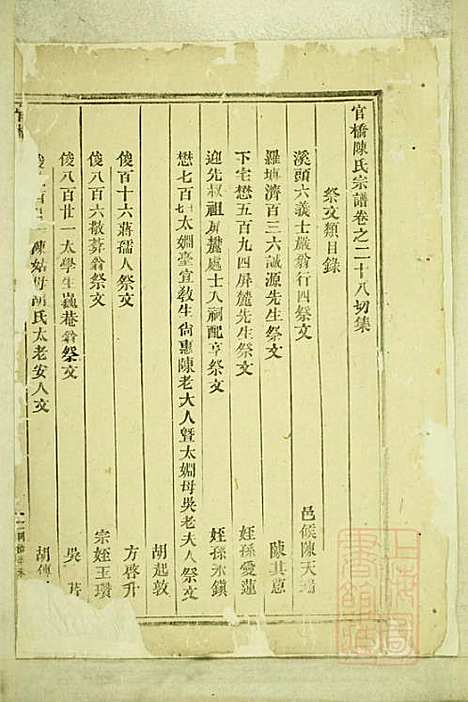 官橋陳氏宗譜卷之二十八初集
祭文類目錄
溪頭六義士嚴翁行四祭文 邑候陳天瑞
羅塘濟百三六誠源先生祭文 陳其蒽
下宅懋五百九四屏麓先生祭文 姪孫愛蓮
迎先叔祖屏麓處士入祠配享祭文 姪孫永鎮
懋七百 太嫺臺宜敎生尙惠陳老大人曁太嫺母吳老夫人祭文
胡起敦
俊百十六蔣孺人祭文 方啓升
俊八百六敬莽翁祭文 宗姪玉瓚
俊八百廿一大學生 菴翁祭文 吳芹
陳姑母胡氏太老安人文 胡傳